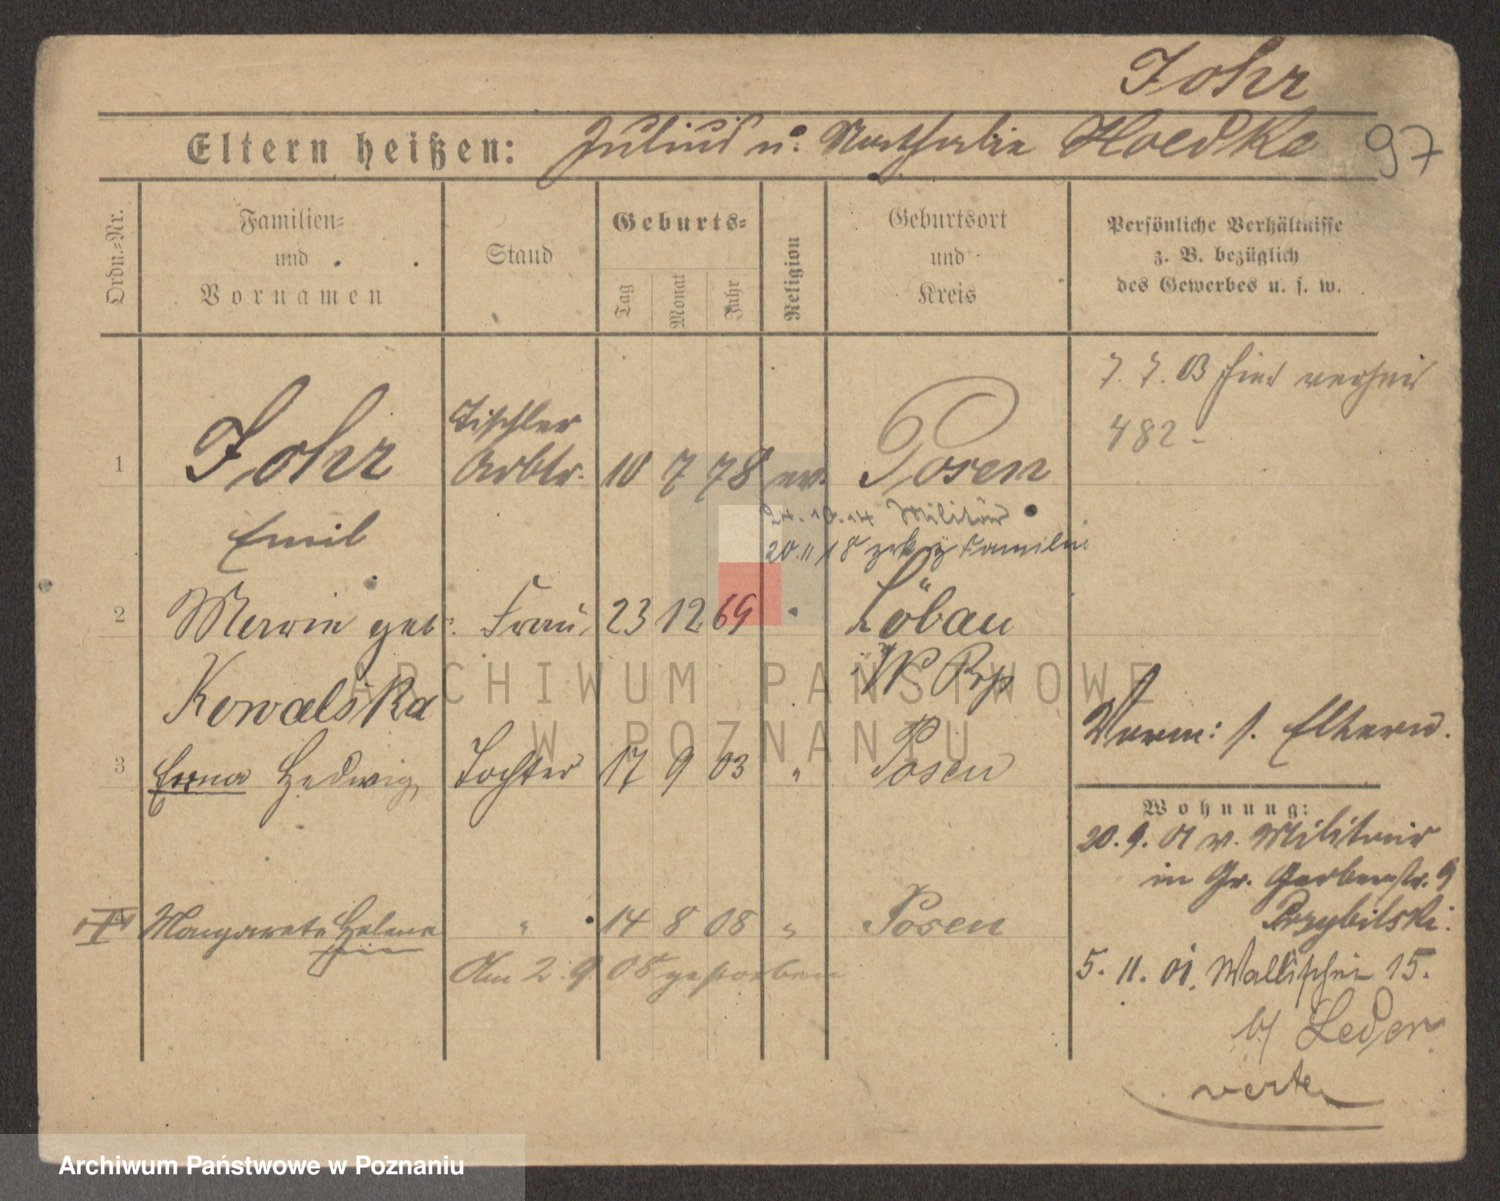 Johr
Eltern heißen: Julius u. Nathalie Hoedke 97
Ordn.-Nr.
Familien-
und
Vornamen
Stand
Geburts-
Tag
Monat
Jahr
Religion
Geburtsort
und
Kreis
Persönliche Verhältnisse
z. B. bezüglich
des Gewerbes u. s. w.
7. 7. 03 hier verheir
482-
Tischler
1 Johr Arbtr. 10 7 78 ev. Posen
24.10.14 Militär
Emil
20 11 18 Familie
2 Marie geb. Frau 23 12 69 " Löbau
W Prp
Kowalska
ARCHIWUM PAŃSTWOWE
W POZNANIU
Verm: s. Eltern.
3 Erna Hedwig, Tochter 17 9 03 " Posen
Wohnung:
20. 9. 01 v. Militair
in Gr. Gerberstr. 9
Przybilski.
Margarete Helene " 14 8 08 " Posen
Am 2. 9 08 gestorben
5. 11. 01. Wallischei 15.
b/ Leder
verte
Archiwum Państwowe w Poznaniu